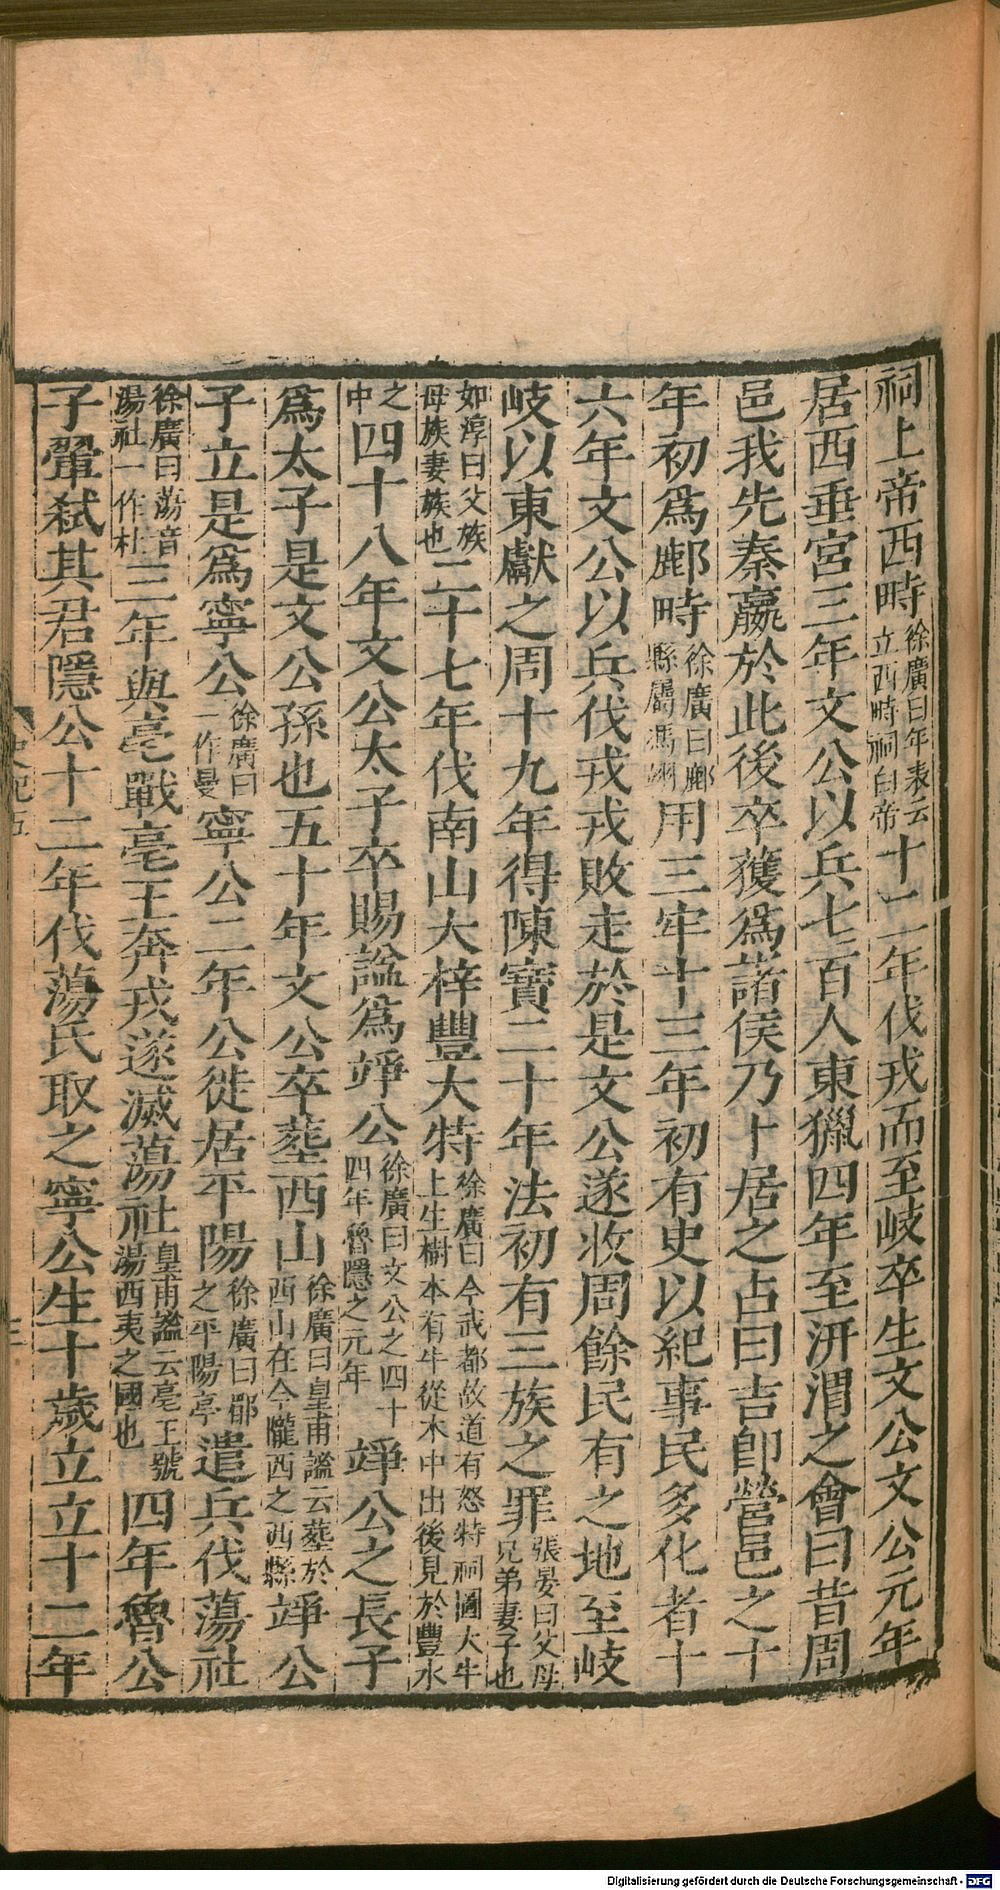 祠上帝西畤徐廣曰年表云立西畤祠白帝十二年伐戎而至岐卒生文公文公元年
居西垂宮三年文公以兵七百人東獵四年至汧渭之會曰昔周
邑我先秦嬴於此後卒獲爲諸侯乃卜居之占曰吉卽營邑之十
年初爲鄜畤徐廣曰鄜縣屬馮翊用三牢十三年初有史以紀事民多化者十
六年文公以兵伐戎戎敗走於是文公遂收周餘民有之地至岐
岐以東獻之周十九年得陳寶二十年法初有三族之罪張晏曰父母兄弟妻子也
如淳曰父族母族妻族也二十七年伐南山大梓豐大特徐廣曰今武都故道有怒特祠圖大牛上生樹本有牛從木中出後見於豐水
之中四十八年文公太子卒賜諡爲竫公徐廣曰文公之四十四年魯隱之元年竫公之長子
爲太子是文公孫也五十年文公卒葬西山徐廣曰皇甫謐云葬於西山在今隴西之西縣竫公
子立是爲寧公徐廣曰一作曼寧公二年公徙居平陽徐廣曰郿之平陽亭遣兵伐蕩社
徐廣曰蕩音湯社一作杜三年與亳戰亳王奔戎遂滅蕩社皇甫謐云亳王號湯西夷之國也四年魯公
子翬弑其君隱公十二年伐蕩氏取之寧公生十歲立立十二年
史記五
三
Digitalisierung gefördert durch die Deutsche Forschungsgemeinschaft - DFG